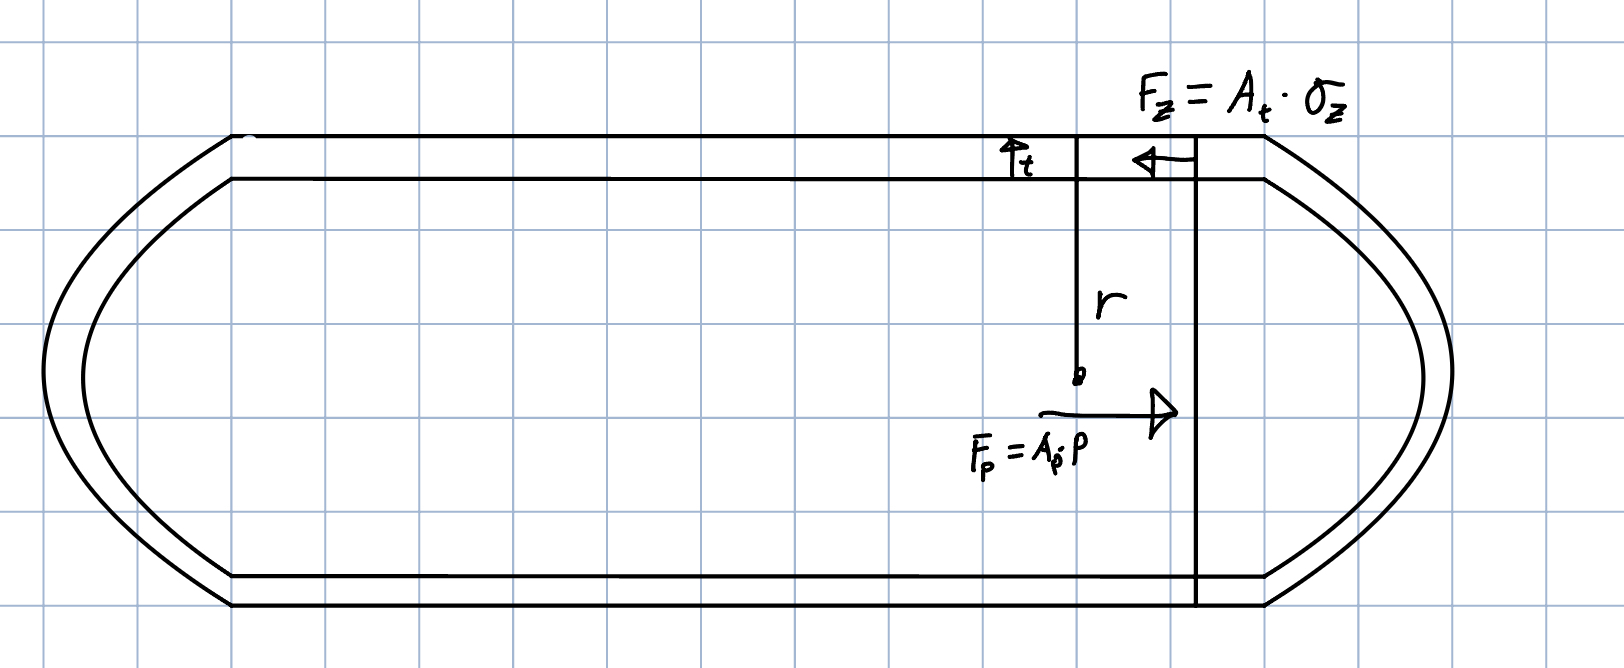 F_z = A_t · σ_z
t
r
F_p = A_p · P